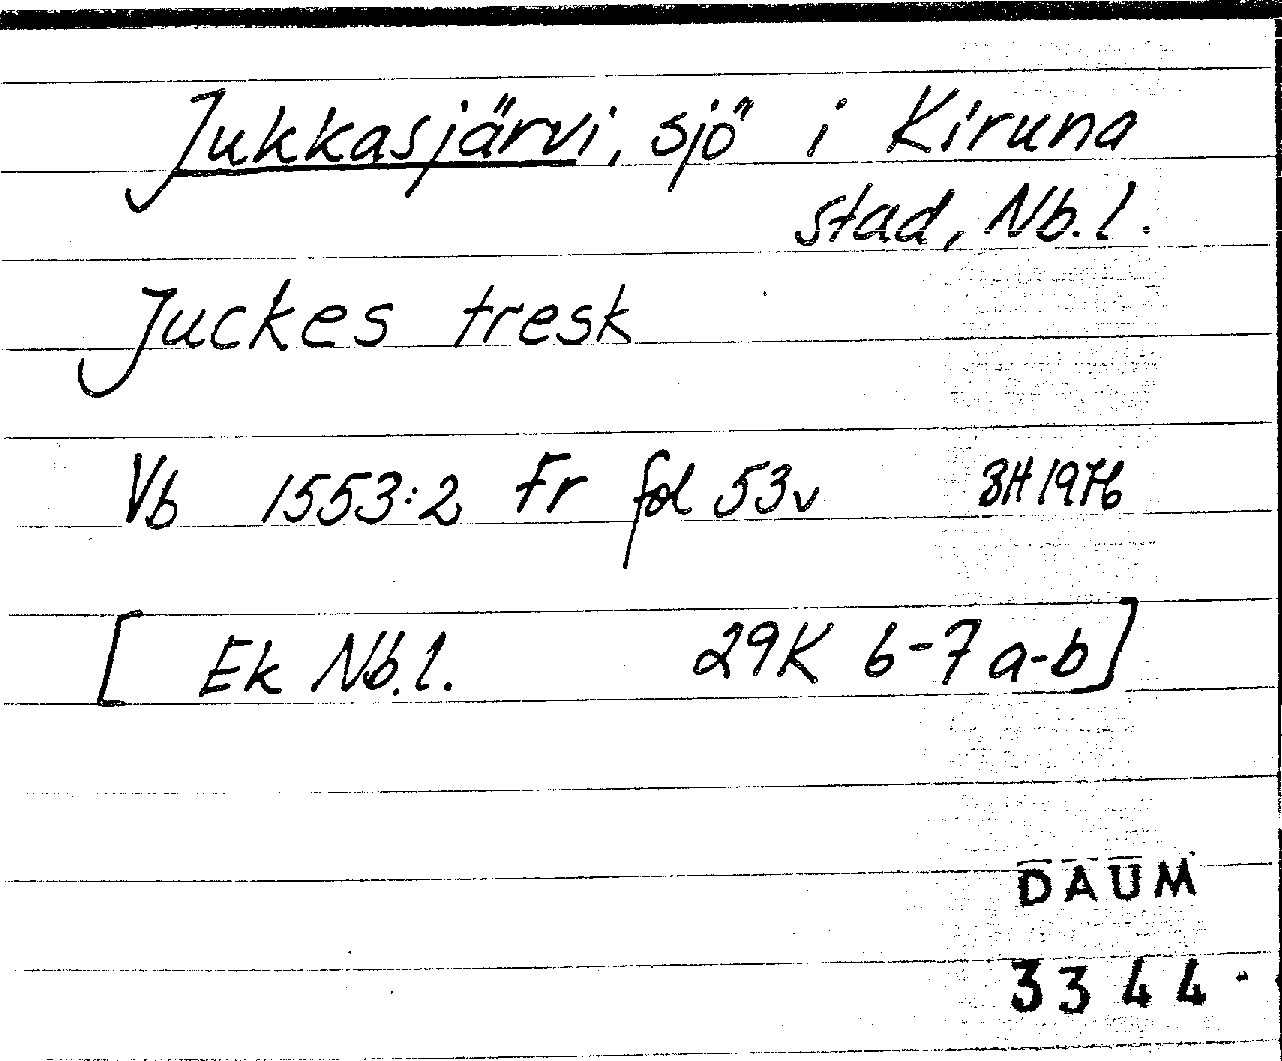 Jukkasjärvi, sjö i Kiruna
stad, Nb.l.
Juckes tresk
Vb 1553:2 Fr fol 53v 1976
[ Ek Nb.l. 29K 6-7 a-b]
DAUM
3344